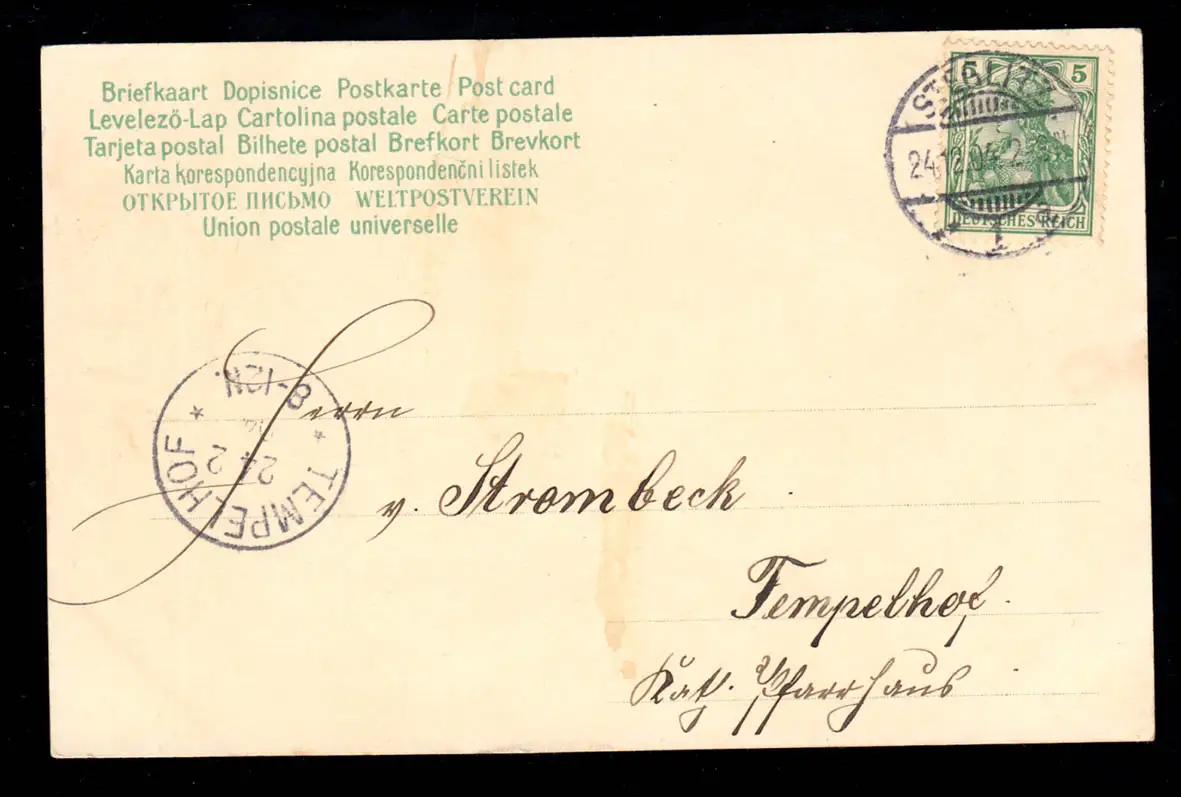 Briefkaart Dopisnice Postkarte Post card
Levelező-Lap Cartolina postale Carte postale
Tarjeta postal Bilhete postal Brefkort Brevkort
Karta korespondencyjna Korespondenční listek
ОТКРЫТОЕ ПИСЬМО WELTPOSTVEREIN
Union postale universelle
5 5
DEUTSCHES REICH
STEGLITZ
1
TEMPELHOF
24 2
8-12N.
Herrn
v. Strombeck
Tempelhof.
Kath. Pfarrhaus